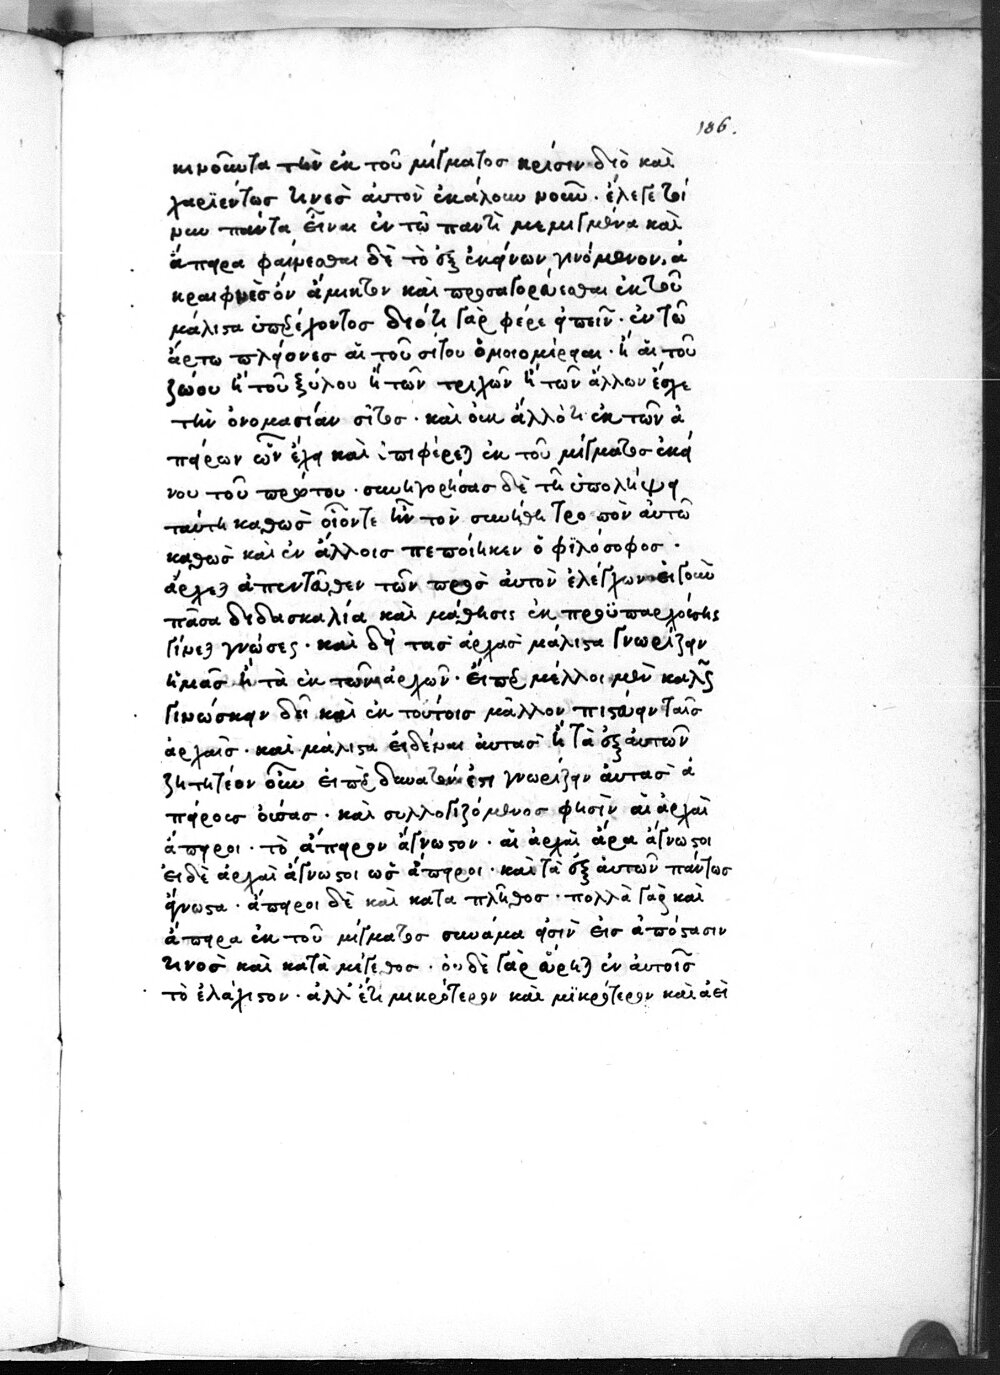 186.
κινοῦντα τὴν ἐκ τοῦ μίγματος κρίσιν διὸ καὶ
χαριέντως τινες αὐτὸν ἐκάλουν νοῦν · ἔλεγε τοί
νυν πάντα εἶναι ἐν τῶ παντὶ μεμιγμένα καὶ
ἄπειρα φαίνεσθαι δὲ τὸ ἐξ ἐκείνων γινόμενον. ἀ
κραιφνὲς ὂν ἄμικτον καὶ προσαγορεύεσθαι ἐκ τοῦ
μάλιστα ὑπερέχοντος διότι γὰρ φέρε εἰπεῖν · ἐν τῶ
ἄρτω πλείονες αἱ τοῦ σίτου ὁμοιομέρειαι · ἢ αἱ τοῦ
ζώου ἢ τοῦ ξύλου ἢ τῶν τριχῶν ἢ τῶν ἄλλων ἔσχε
τὴν ὀνομασίαν σῖτος · καὶ οὐκ ἄλλό τι ἐκ τῶν ἀ
πείρων ὧν ἔχει καὶ ἐπιφέρεται ἐκ τοῦ μίγματος ἐκεί
νου τοῦ πρώτου · συνηγορήσας δὲ τῆ ὑπολήψει
ταύτη καθὼς οἷόντε ἦν τὸν συνήθη τρο πὸν αὐτῶ
καθὼς καὶ ἐν ἄλλοις πεποίηκεν ὁ φϊλόσοφος ·
ἄρχεται ἀπεντεῦθεν τῶν πρὸς αὐτὸν ἐλέγχων · εἰ γοῦν
πᾶσα διδασκαλία καὶ μάθησις ἐκ προϋπαρχούσης
γίνεται γνώσεως · καὶ δεῖ τας ἀρχας μάλιστα γνωρίζειν
ἡμᾶς ἢ τὰ ἐκ τῶν ἀρχῶν · εἴπερ μέλλοιμεν καλῶς
γινώσκειν δεῖ καὶ ἐκ τούτοις μᾶλλον πιστεύειν ταῖς
ἀρχαῖς · καὶ μάλιστα εἰδέναι αὐτας ἢ τὰ ἐξ αὐτῶν
ζητητέον οὖν εἰπερ δυνατόν ἐστι γνωρίζειν αὐτας ἀ
πείρους οὔσας · καὶ συλλογιζόμενος φησὶν αἱ ἀρχαὶ
ἄπειροι · τὸ ἄπειρον ἄγνωστον · αἱ ἀρχαὶ ἄρα ἄγνωστοι
εἰ δὲ ἀρχαὶ ἄγνωστοι ὡς ἄπειροι · καὶ τὰ ἐξ αὐτῶν πάντως
ἄγνωστα · ἄπειροι δὲ καὶ κατα πλῆθος · πολλὰ γὰρ καὶ
ἄπειρα ἐκ τοῦ μίγματος συνάμα εἰσὶν εἰς ἀπόστασιν
τινος καὶ κατὰ μέγεθος · οὐδὲ γὰρ εὕρηται ἐν αὐτοῖς
τὸ ἐλάχιστον · ἀλλ' ἔτι μικρότερον καὶ μϊκρότερον καὶ ἀεὶ